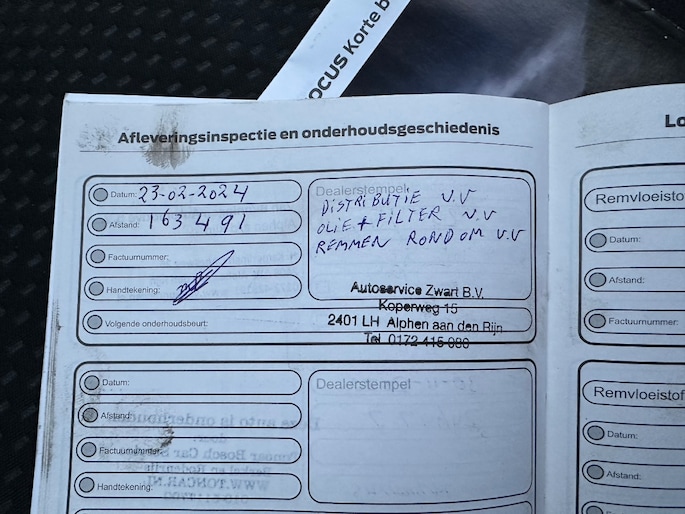 OCUS Korte b
Afleveringsinspectie en onderhoudsgeschiedenis
Datum: 23-02-2024
Afstand: 163491
Factuurnummer:
Handtekening:
Volgende onderhoudsbeurt:
Dealerstempel
DISTRIBUTIE V.V
OLIE + FILTER V.V
REMMEN RONDOM V.V
Autoservice Zwart B.V.
Koperweg 15
2401 LH Alphen aan den Rijn
Tel 0172-415
Datum:
Afstand:
Factuurnummer:
Handtekening:
Dealerstempel
Lo
Remvloeistof
Datum:
Afstand:
Factuurnummer:
Remvloeistof
Datum:
Afstand: